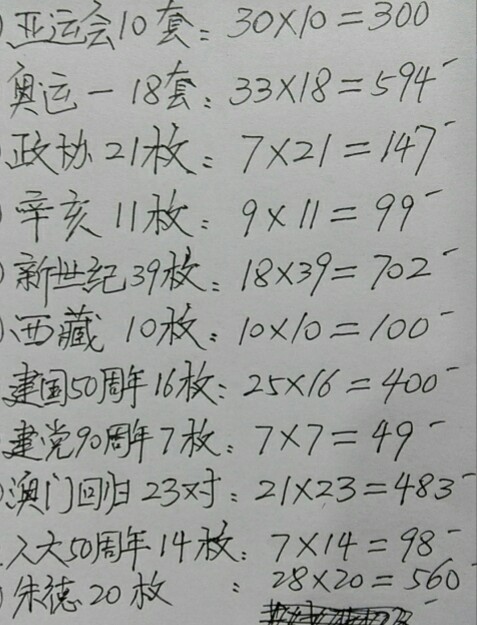 亚运会10套: 30×10=300
奥运一 18套: 33×18=594-
政协 21枚: 7×21=147-
辛亥 11枚: 9×11=99-
新世纪39枚: 18×39=702-
西藏 10枚: 10×10=100-
建国50周年16枚: 25×16=400-
建党90周年7枚: 7×7=49-
澳门回归 23对: 21×23=483-
人大50周年14枚: 7×14=98-
朱德20枚 : 28×20=560-